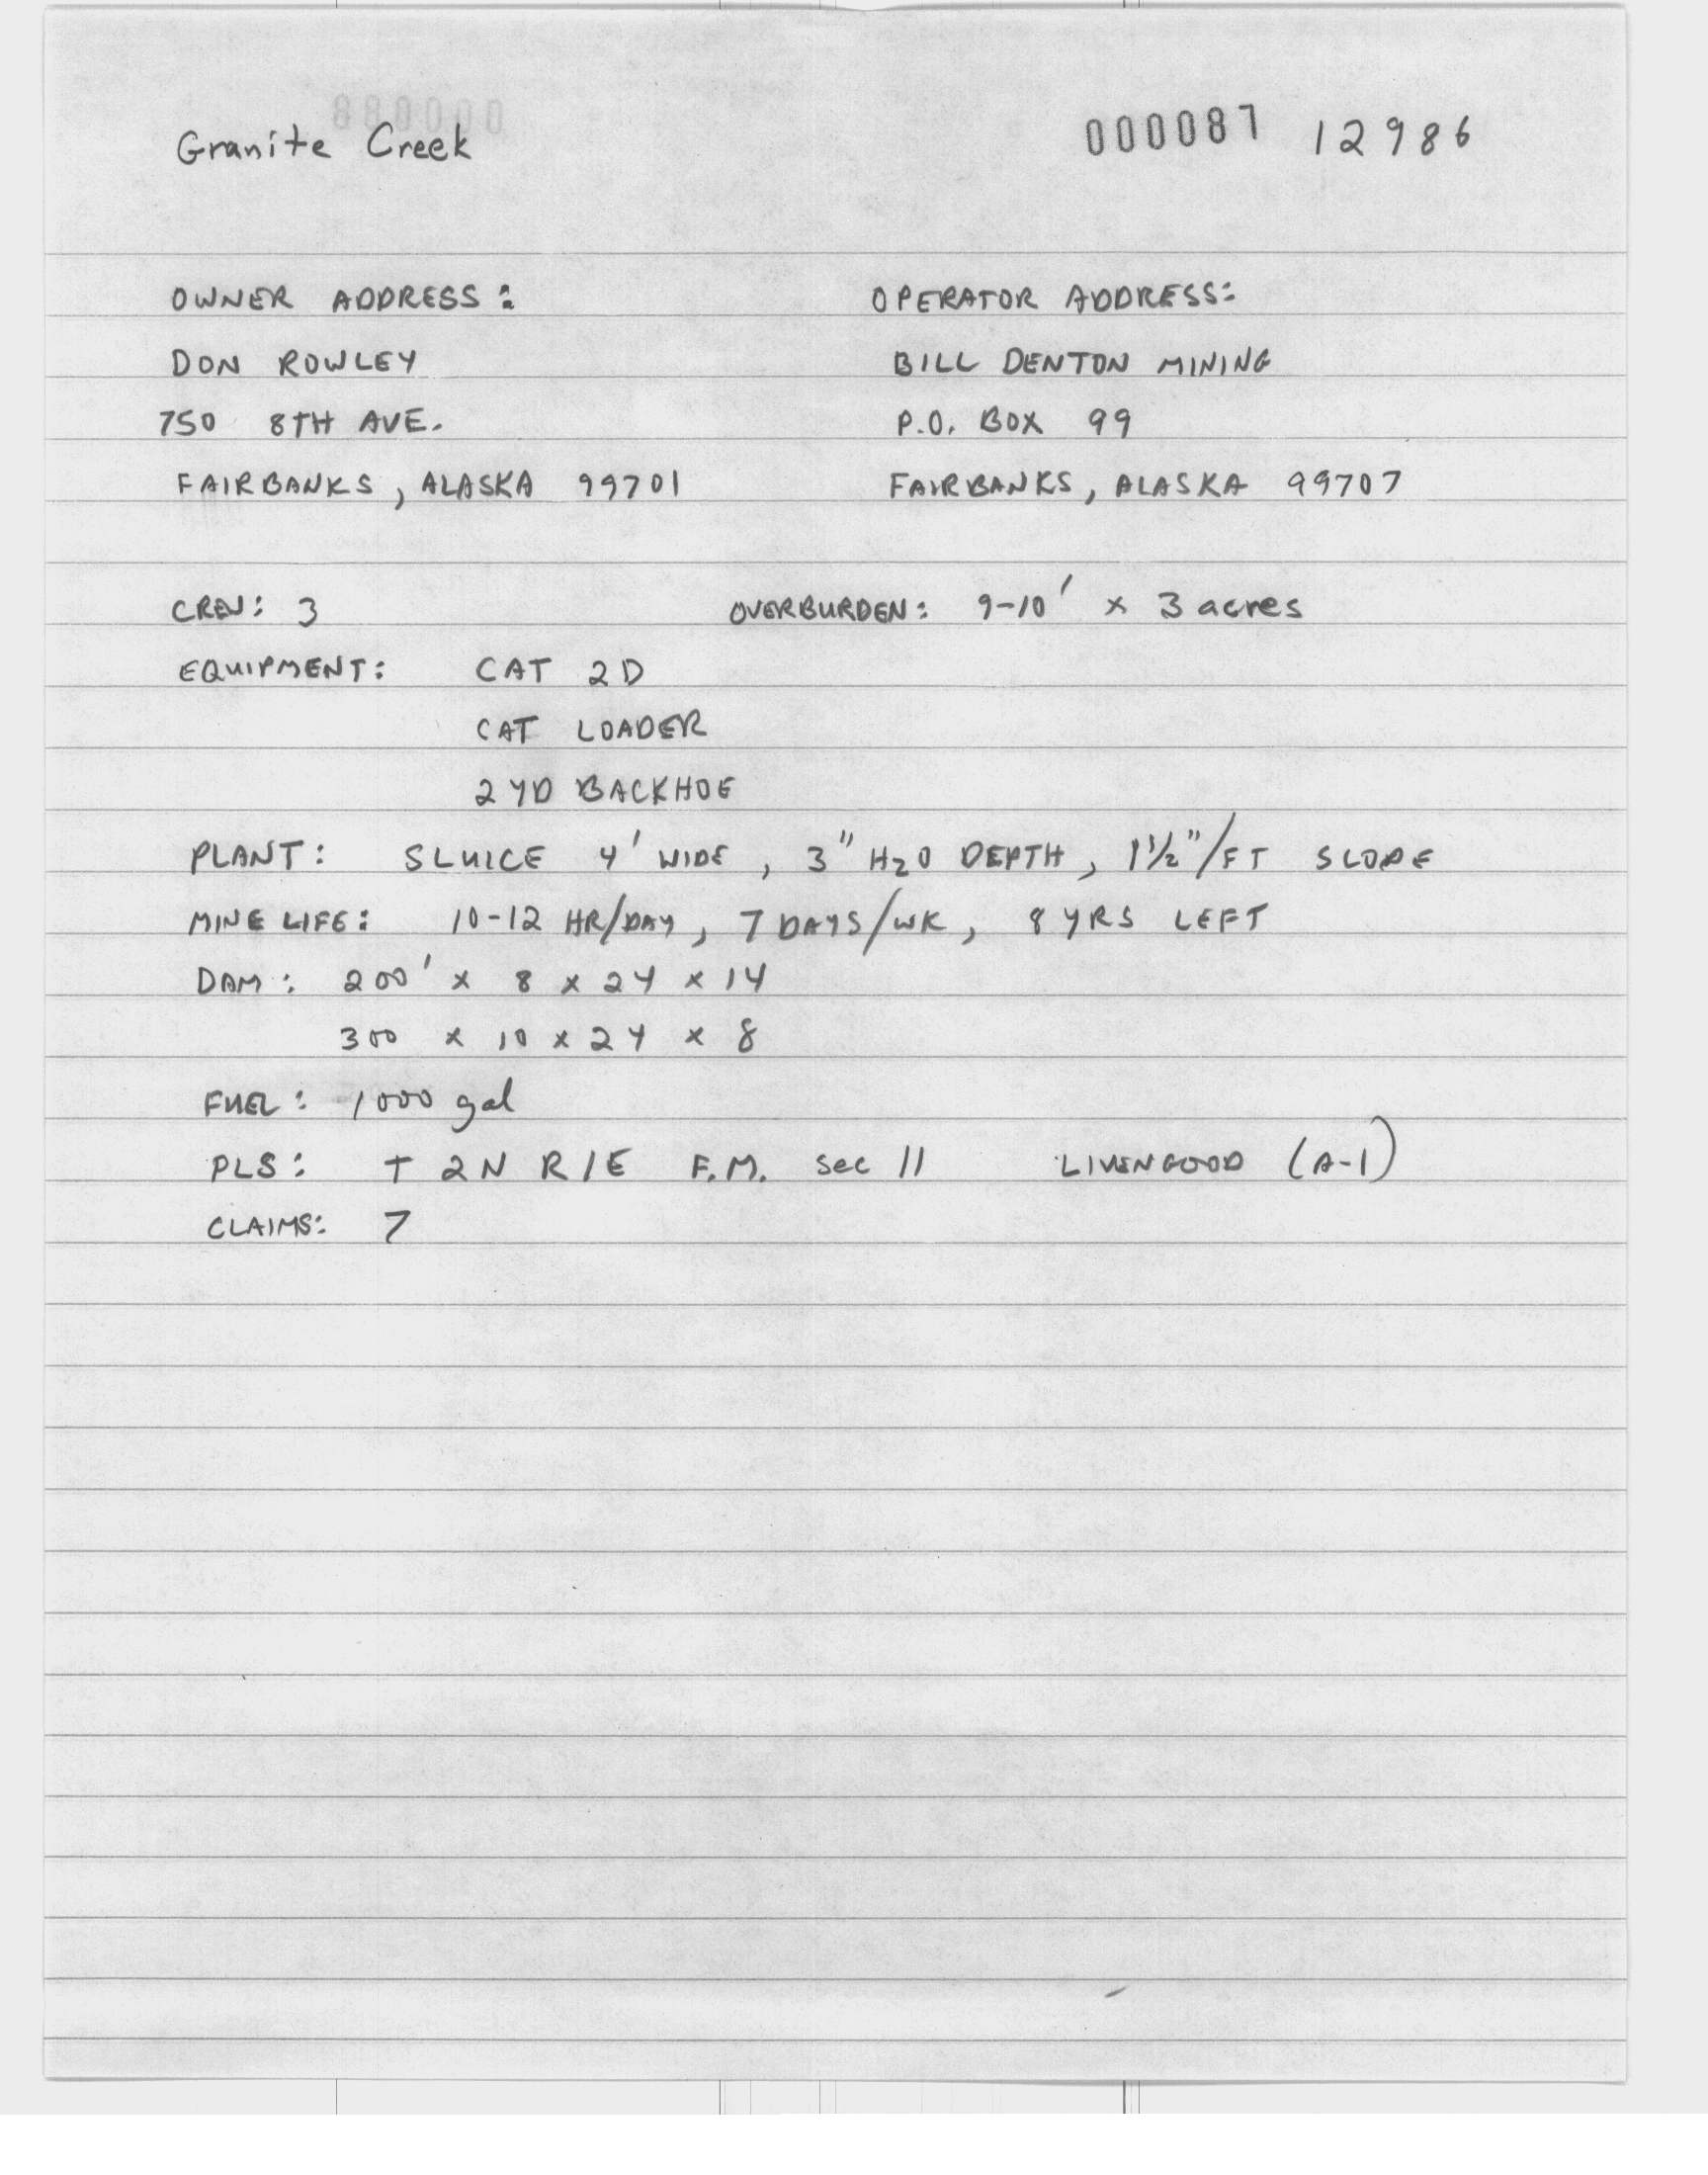 Granite Creek 000087 12986
OWNER ADDRESS: OPERATOR ADDRESS:
DON ROWLEY BILL DENTON MINING
750 8TH AVE. P.O. BOX 99
FAIRBANKS, ALASKA 99701 FAIRBANKS, ALASKA 99707
CREW: 3 OVERBURDEN: 9-10' x 3 acres
EQUIPMENT: CAT 2D
CAT LOADER
2 YD BACKHOE
PLANT: SLUICE 4' WIDE, 3" H2O DEPTH, 1 1/2"/FT SLOPE
MINE LIFE: 10-12 HR/DAY, 7 DAYS/WK, 8 YRS LEFT
DAM: 200' x 8 x 24 x 14
300 x 10 x 24 x 8
FUEL: 1000 gal
PLS: T 2N R1E F.M. sec 11 LIVENGOOD (A-1)
CLAIMS: 7